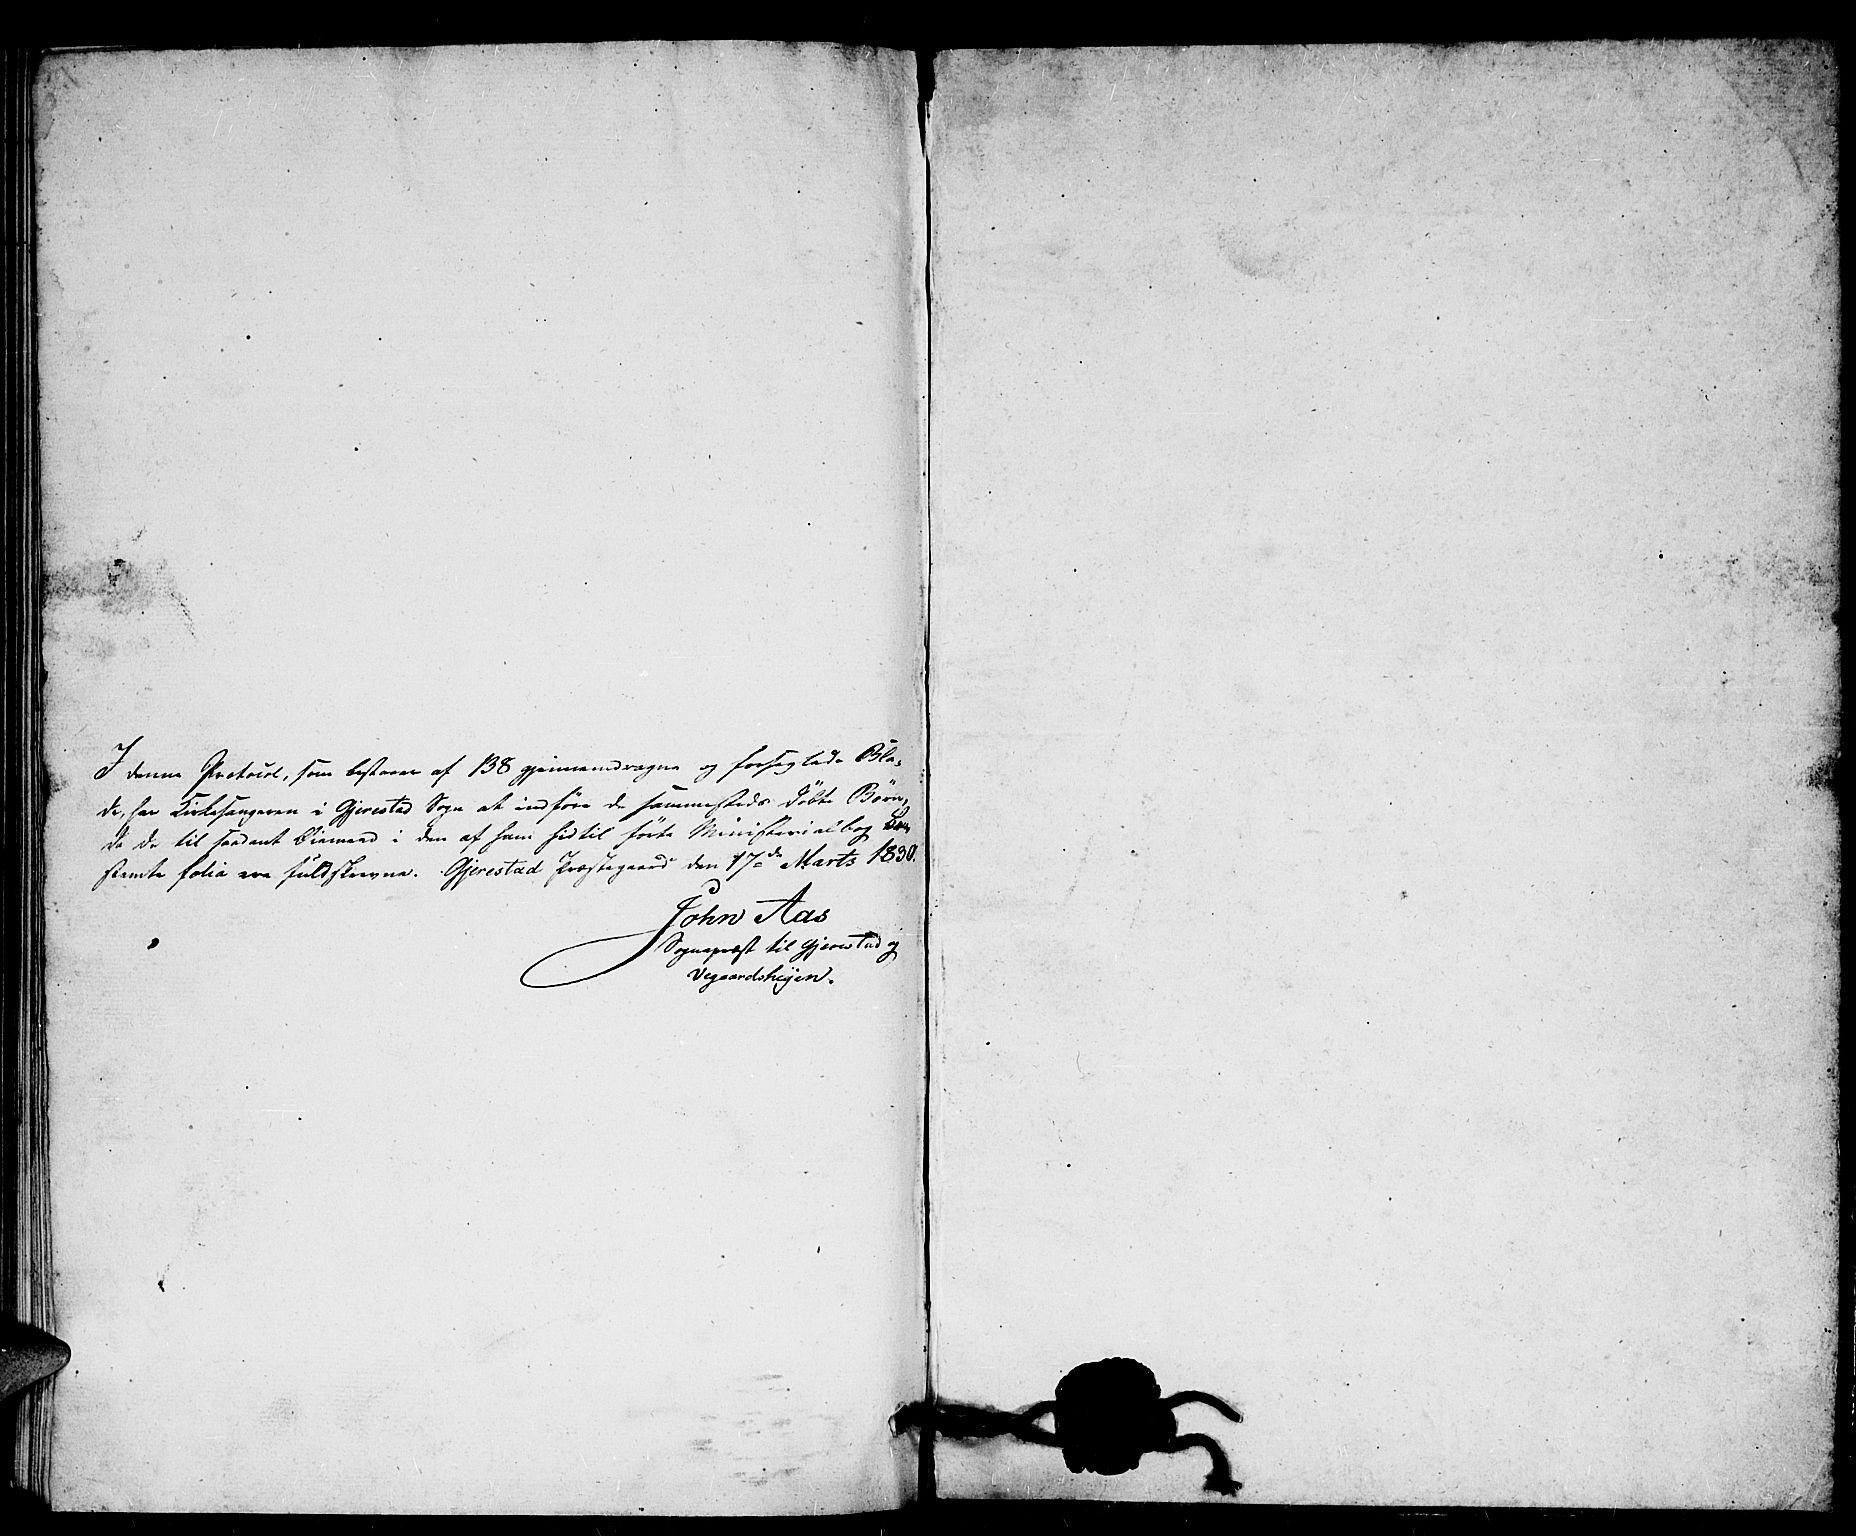 I denne Protocol, som bestaaer af 138 gjennemdragne og forseglede Bla-
de, har Kirkesangeren i Gjerestad Sogn at indføre de sammesteds døbte Børn,
da de til saadant Øiemeed i den af ham hidtil førte Ministerialbog be-
stemte folia ere fuldskrevne. Gjerestad Præstegaard den 17de Marts 1830.
John Aas
Sognepræst til Gjerestad og
Vegaardsheijen.